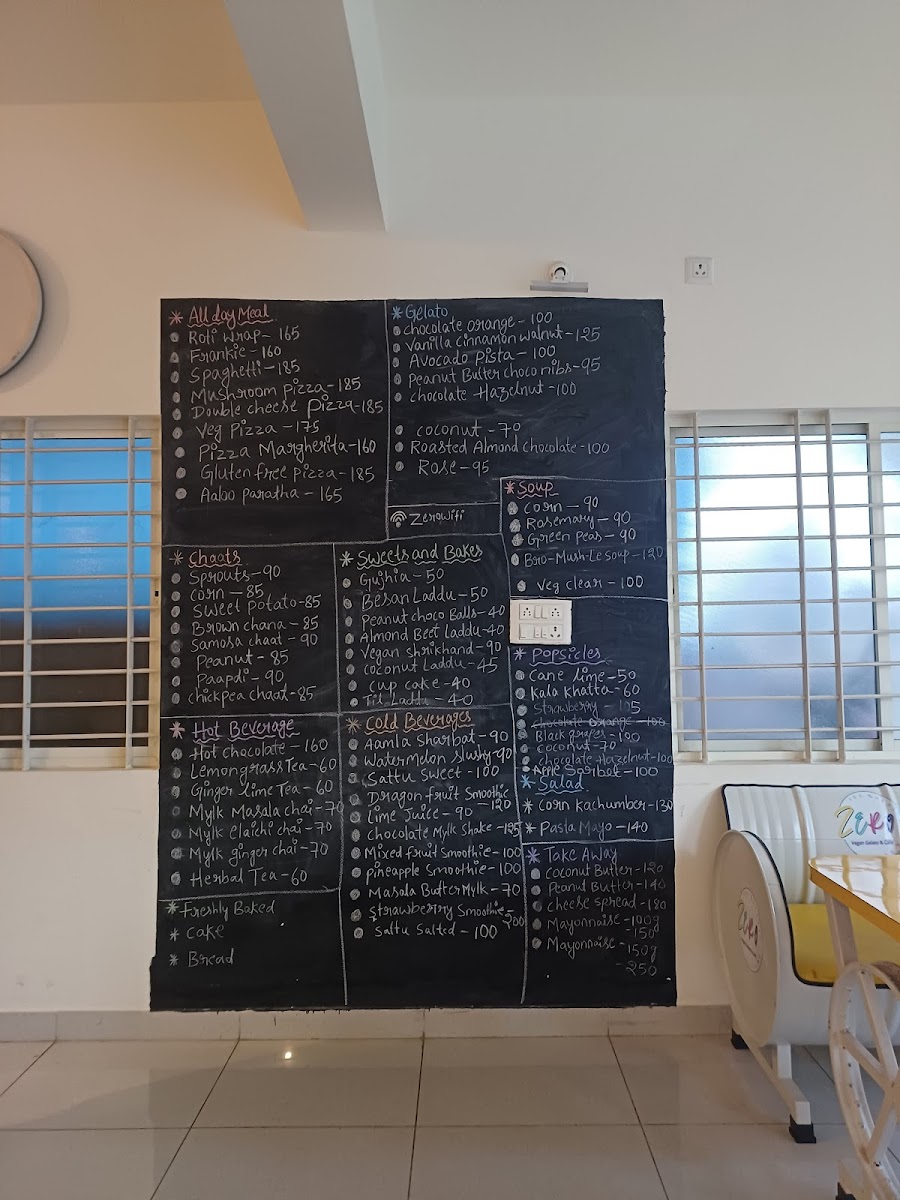 * All day Meal
Roti Wrap - 165
Frankie - 160
Spaghetti - 185
Mushroom Pizza - 185
Double cheese Pizza - 185
Veg Pizza - 175
Pizza Margherita - 160
Gluten free Pizza - 185
Aaloo paratha - 165
* Gelato
chocolate orange - 100
Vanilla cinnamon walnut - 125
Avocado Pista - 100
Peanut Butter choco nibs - 95
chocolate Hazelnut - 100
coconut - 70
Roasted Almond Chocolate - 100
Rose - 95
ZeroWifi
* Soup
Corn - 90
Rosemary - 90
Green Peas - 90
Boro-Mush-Le Soup - 120
Veg clear - 100
* Chaats
Sprouts - 90
Corn - 85
Sweet Potato - 85
Brown chana - 85
Samosa chaat - 90
Peanut - 85
Paapdi - 90
chickpea chaat - 85
* Sweets and Bakes
Gujhia - 50
Besan Laddu - 50
Peanut choco Balls - 40
Almond Beet Laddu - 40
Vegan shrikhand - 90
coconut Laddu - 45
Cup cake - 40
Til Laddu - 40
* Popsicles
Cane lime - 50
Kala Khatta - 60
Strawberry - 105
chocolate orange - 100
Black grapes - 100
coconut - 70
chocolate Hazelnut - 100
Apple Sorbet - 100
* Salad
* Corn Kachumber - 130
* Pasta Mayo - 140
* Hot Beverage
Hot chocolate - 160
Lemongrass Tea - 60
Ginger lime Tea - 60
Mylk Masala chai - 70
Mylk elaichi chai - 70
Mylk ginger chai - 70
Herbal Tea - 60
* Cold Beverages
Aamla Sharbat - 90
Watermelon slushy - 90
Sattu Sweet - 100
Dragon fruit Smoothie
- 120
Lime Juice - 90
Chocolate Mylk Shake - 195
Mixed fruit Smoothie - 100
Pineapple Smoothie - 100
Masala ButterMylk - 70
Strawberry Smoothie -
200
Sattu Salted - 100
* Take Away
Coconut Butter - 120
Peanut Butter - 140
cheese spread - 180
Mayonnaise - 100g
- 150
Mayonnaise - 150g
- 250
* Freshly Baked
* Cake
* Bread
ZERO
Vegan Gelato & Café
ZERO